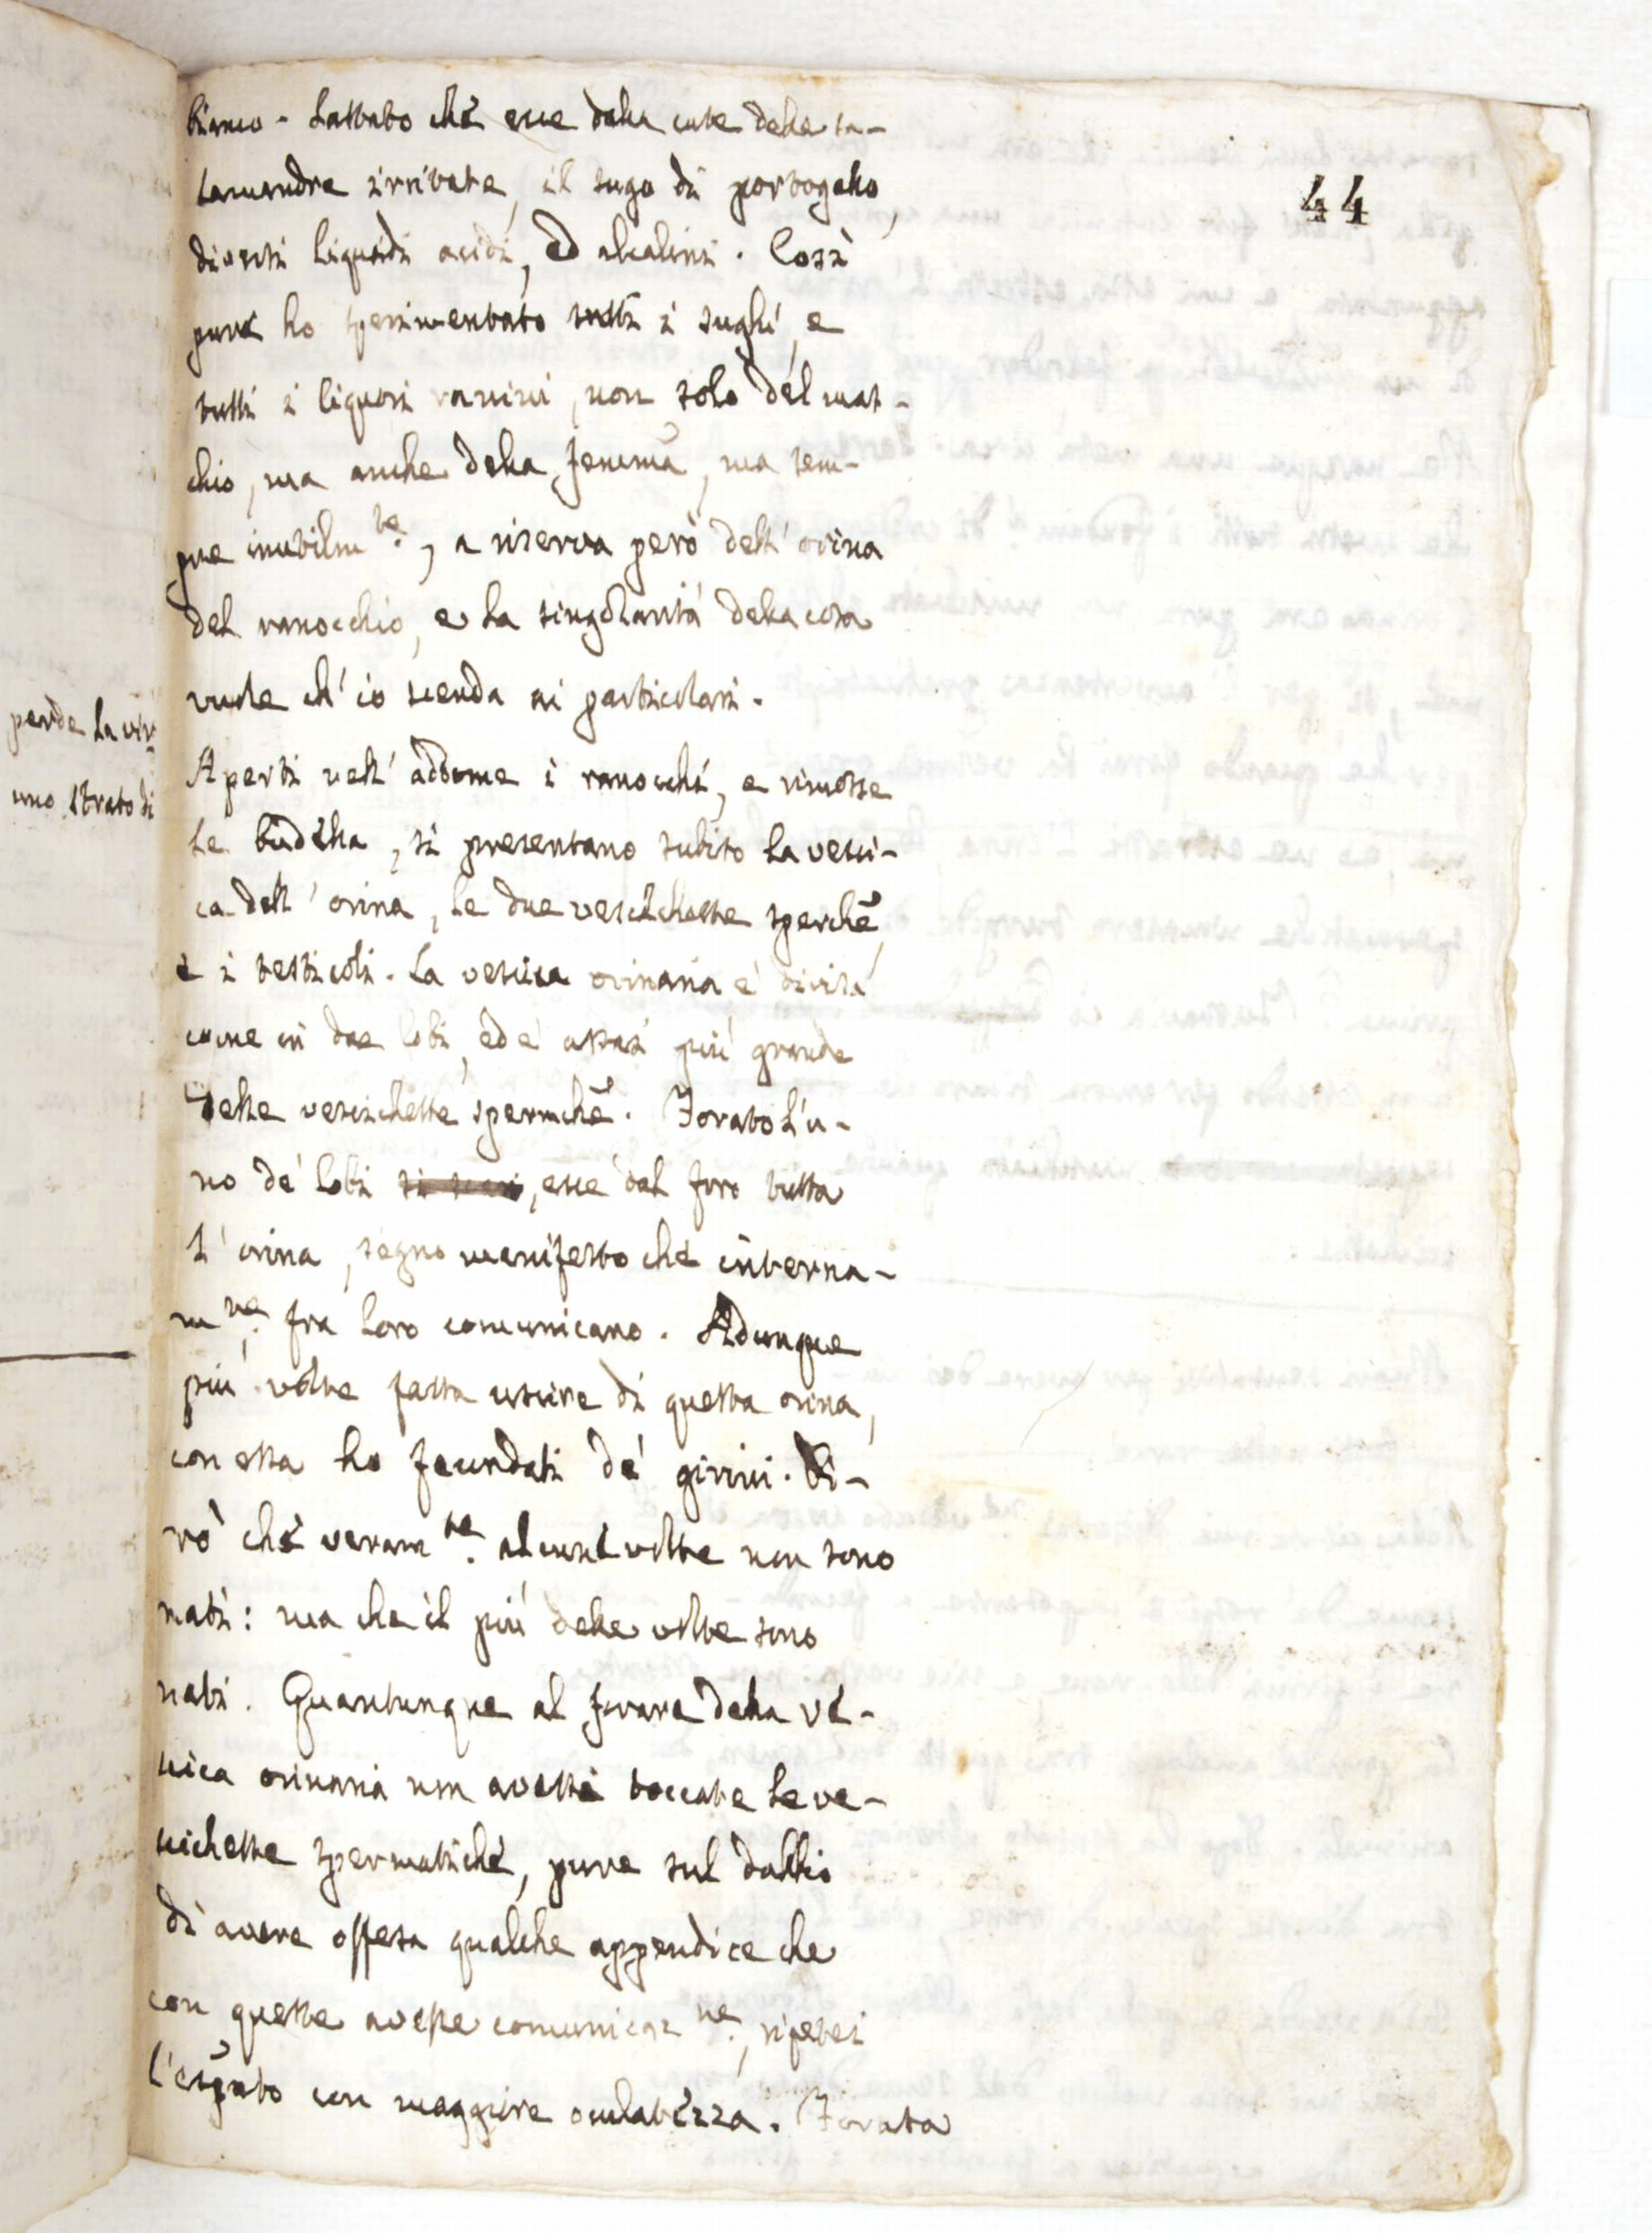 44
bianco-lattato che esce dalla cute delle sa-
lamandre irritate, il sugo di portogallo,
diversi liquidi acidi, ed alcalini. Così
pure ho sperimentato tutti i sughi, e
tutti i liquori ranini, non solo del mas-
chio, ma anche della femina, ma sem-
pre inutilm.te, a riserva però dell' orina
del ranocchio, e la singolarità della cosa
vuole ch' io scenda ai particolari.
Aperti nell' addome i ranocchi, e rimosse
le budella, si presentano subito la vesci-
ca dell' orina, le due vescichette sperche,
e i testicoli. La vescica orinaria è divisa
come in due lobi, ed è assai più grande
delle vescichette spermche. Forato l'u-
no de' lobi, esce dal foro tutta
l' orina, segno manifesto che interna-
m.te fra loro comunicano. Adunque
più volte fatta uscire di questa orina,
con essa ho fecundati de' girini. Di-
rò che veram.te alcune volte non sono
nati: ma che il più delle volte sono
nati. Quantunque al forare della ve-
scica orinaria non avessi toccate le ve-
scichette spermatiche, pure sul dubbio
di avere offesa qualche appendice che
con queste avesse comunicaz.ne, ripetei
l'esprto con maggiore oculatezza. Forata
perde la vir
uno strato di